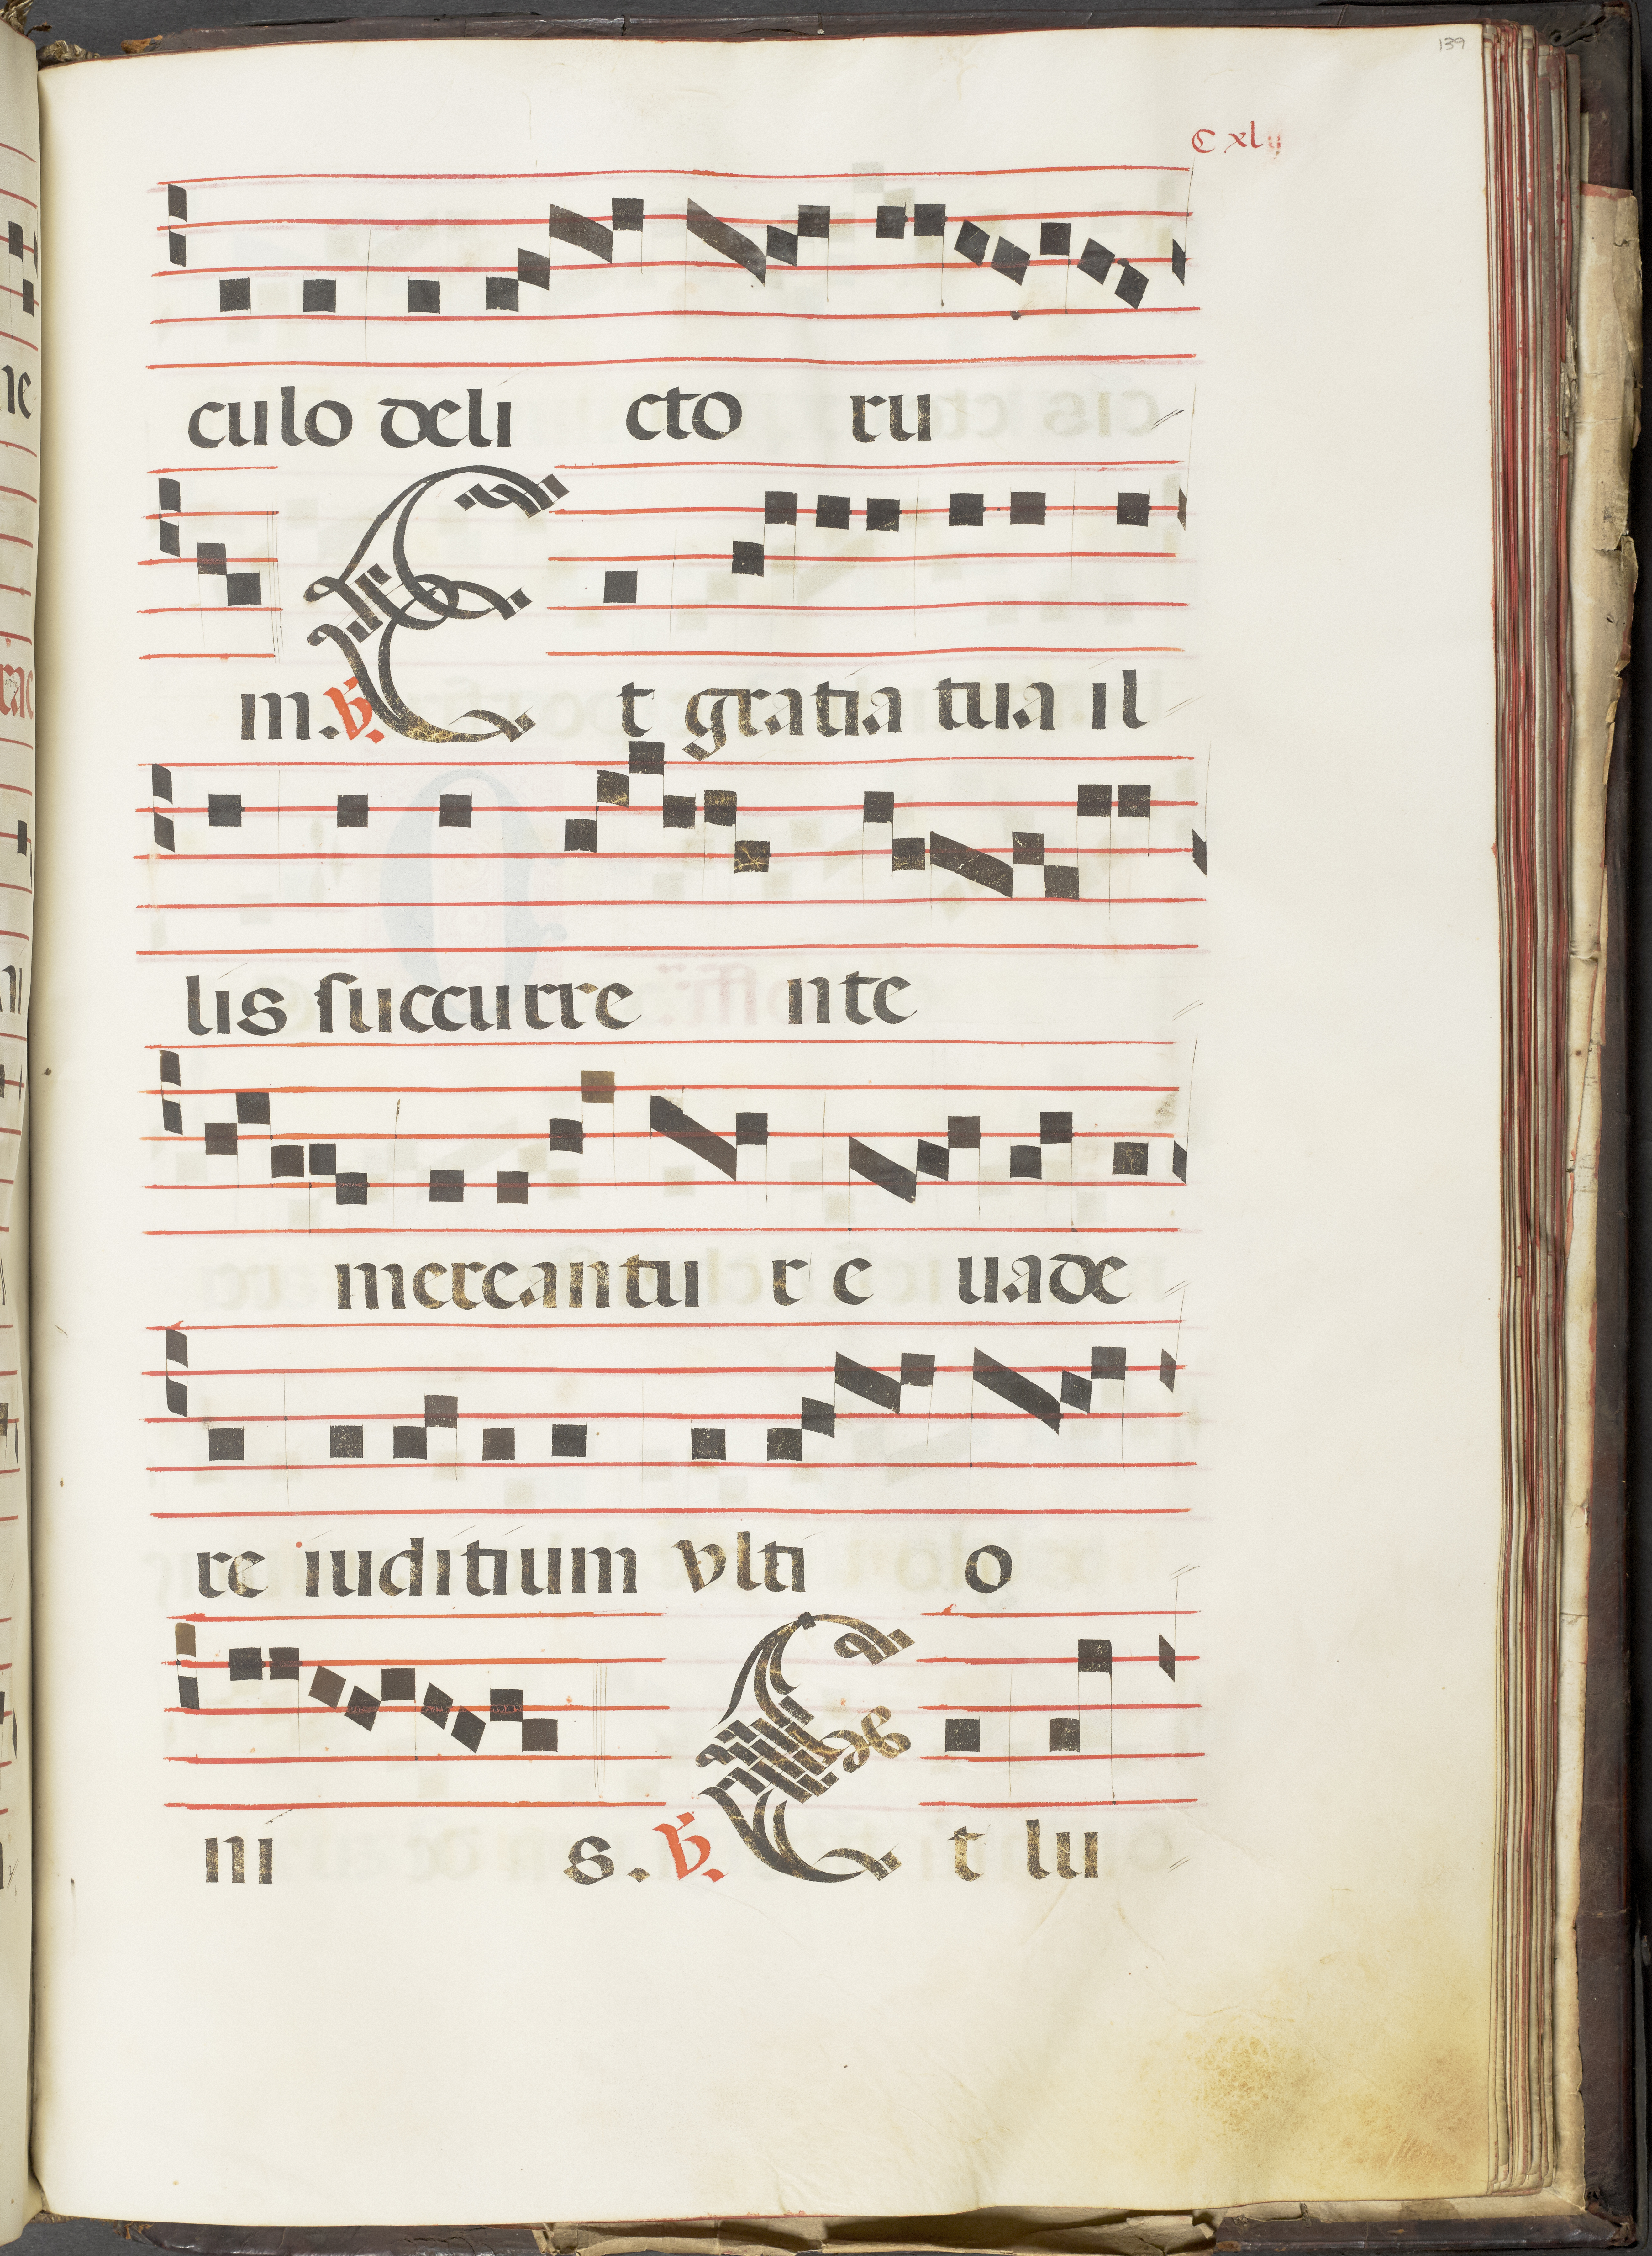 139
C xlij
culo deli cto ru
m. ℣. Et gratia tua il
lis succurre nte
mereantu r e uade
re iuditium vlti o
ni s. ℣. Et lu